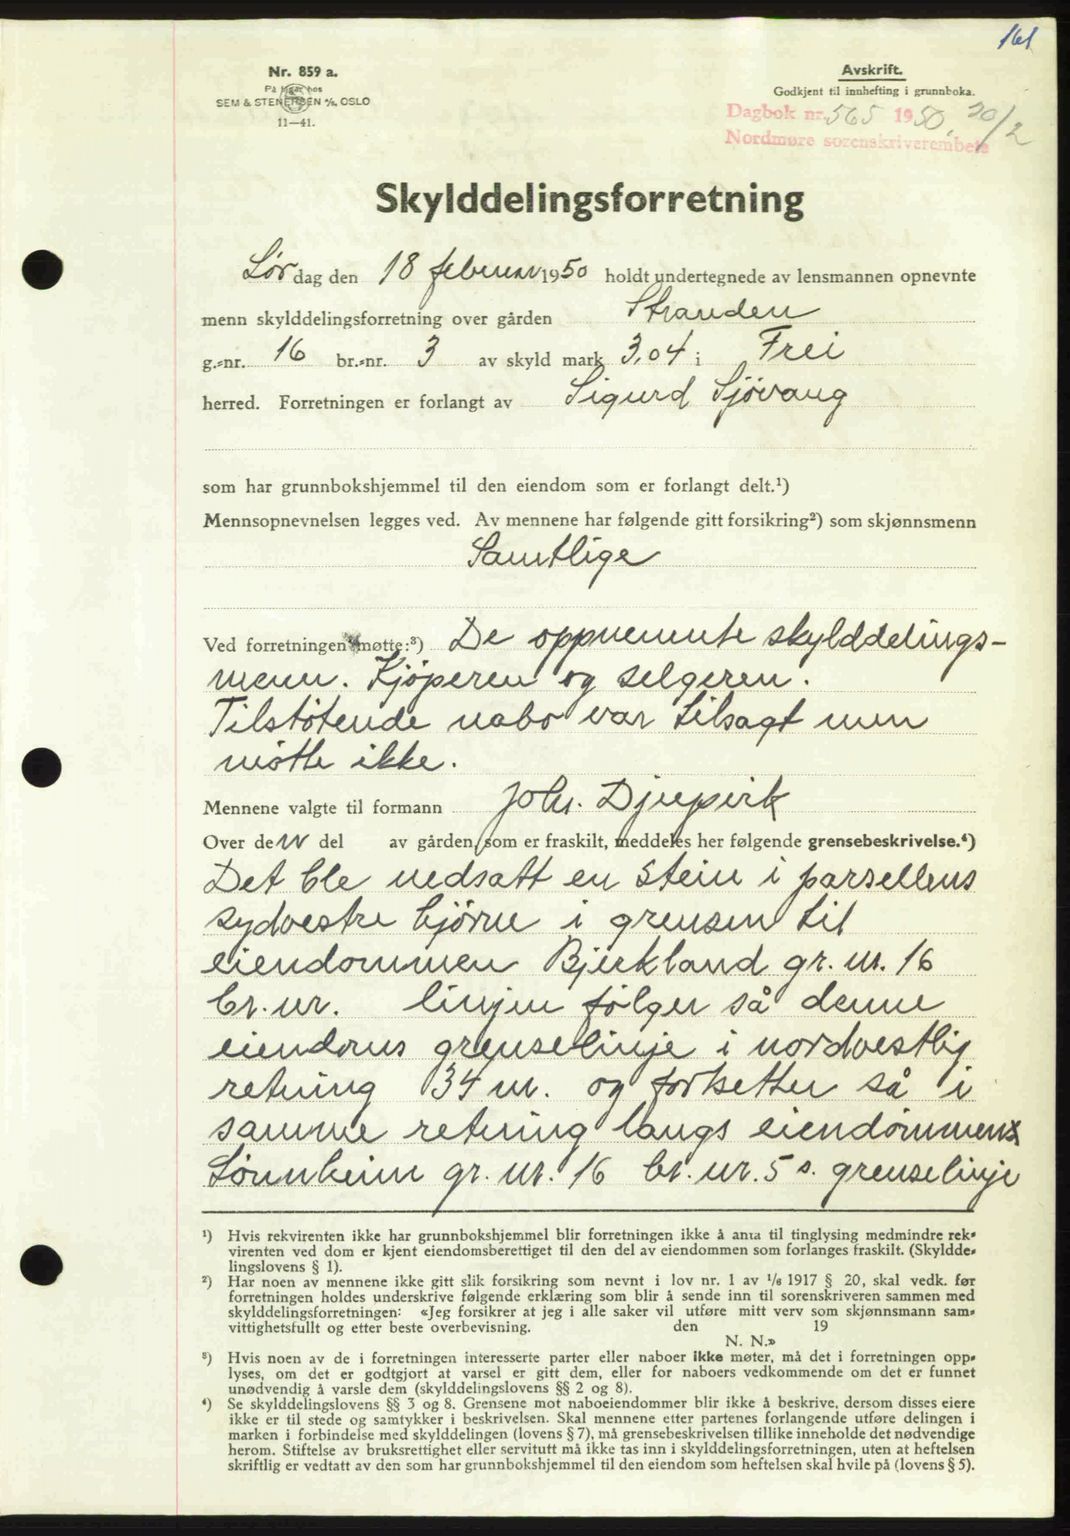 161
Nr. 859 a.
På lager hos
SEM & STENERSEN A/S, OSLO
11—41.
Avskrift.
Godkjent til innhefting i grunnboka.
Dagbok nr. 565 1950, 20/2
Nordmøre sorenskriverembete
Skylddelingsforretning
Lør dag den 18 februar 1950 holdt undertegnede av lensmannen opnevnte
menn skylddelingsforretning over gården Stranden
g.-nr. 16 br.-nr. 3 av skyld mark 3,04 i Frei
herred. Forretningen er forlangt av Sigurd Sjövaug
som har grunnbokshjemmel til den eiendom som er forlangt delt.¹)
Mennsopnevnelsen legges ved. Av mennene har følgende gitt forsikring²) som skjønnsmenn
Samtlige
Ved forretningen møtte:³) De oppnevnte skylddelings-
menn. Kjöperen og selgeren.
Tilstötende nabo var tilsagt men
mötte ikke.
Mennene valgte til formann Johs. Djupvik
Over den del av gården, som er fraskilt, meddeles her følgende grensebeskrivelse.⁴)
Det ble nedsatt en stein i parsellens
sydvestre hjörne i grensen til
eiendommen Bjerkland gr. nr. 16
br. nr. linjen fölger så denne
eiendoms grenselinje i nordvestlig
retning 34 m. og fortsetter så i
samme retning langs eiendommen
Sörnheim gr. nr. 16 br. nr. 5 s. grenselinje
¹) Hvis rekvirenten ikke har grunnbokshjemmel blir forretningen ikke å anta til tinglysing medmindre rek-
virenten ved dom er kjent eiendomsberettiget til den del av eiendommen som forlanges fraskilt. (Skyldde-
lingslovens § 1).
²) Har noen av mennene ikke gitt slik forsikring som nevnt i lov nr. 1 av 1/6 1917 § 20, skal vedk. før
forretningen holdes underskrive følgende erklæring som blir å sende inn til sorenskriveren sammen med
skylddelingsforretningen: «Jeg forsikrer at jeg i alle saker vil utføre mitt verv som skjønnsmann sam-
vittighetsfullt og etter beste overbevisning. den 19
N. N.»
³) Hvis noen av de i forretningen interesserte parter eller naboer ikke møter, må det i forretningen opp-
lyses, om det er godtgjort at varsel er gitt dem, eller for naboers vedkommende om det er funnet
unødvendig å varsle dem (skylddelingslovens §§ 2 og 8).
⁴) Se skylddelingslovens §§ 3 og 8. Grensene mot naboeiendommer blir ikke å beskrive, dersom disses eiere
ikke er til stede og samtykker i beskrivelsen. Skal mennene etter partenes forlangende utføre delingen i
marken i forbindelse med skylddelingen (lovens § 7), må grensebeskrivelsen tillike inneholde det nødvendige
herom. Stiftelse av bruksrettighet eller servitutt må ikke tas inn i skylddelingsforretningen, uten at heftelsen
skriftlig er vedtatt av den som har grunnbokshjemmel til den eiendom som heftelsen skal hvile på (lovens § 5).